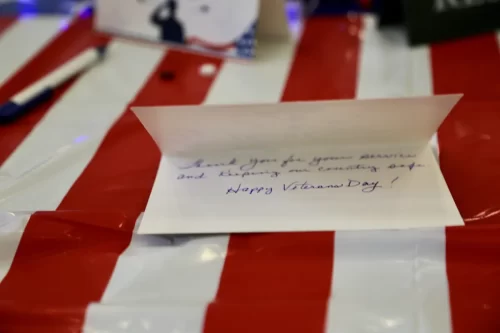 Thank you for your service
and keeping our country safe
Happy Veterans Day!